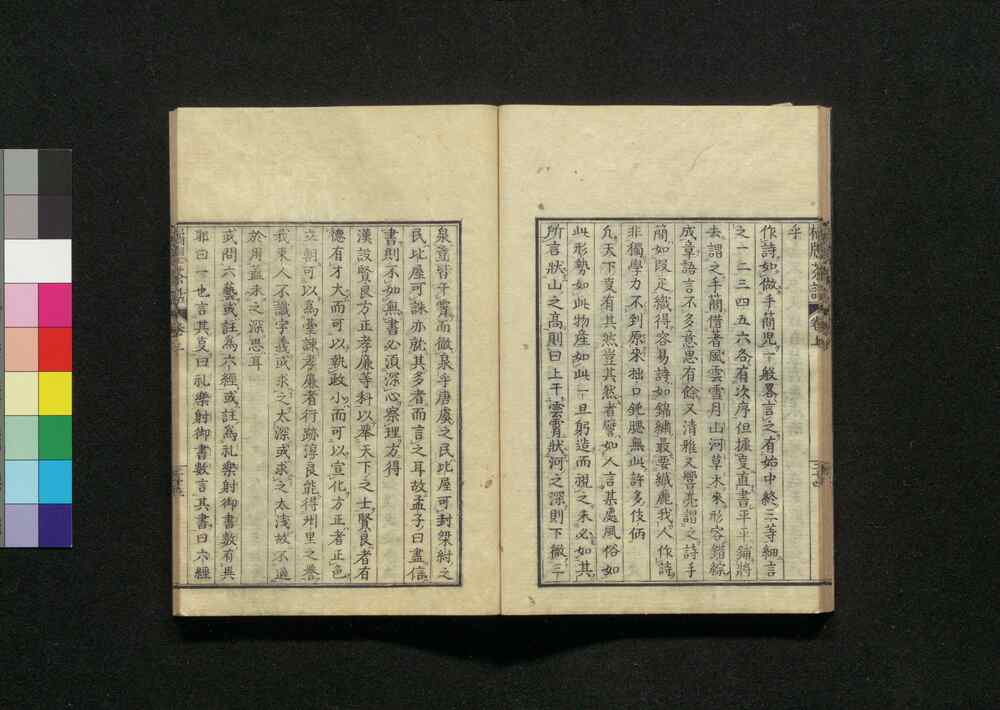 乎
作詩如做手簡児一般畧言之有始中終三等細言
之一二三四五六各有次序但據㕝直書平平鋪將
去謂之手簡借著風雲雪月山河草木來形容錯綜
成章語言不多意思有餘又清雅又響亮謂之詩手
簡如叚疋織得容易詩如錦繡最要織麁我人作詩
非獨學力不到原來拙口鈍腮無此許多伎倆
凢天下㕝有其然豈其然者譬如人言某處風俗如
此形勢如此物産如此一旦躬造而視之未必如其
所言狀山之高則曰上干雲霄狀河之深則下徹三
泉豈皆干霄而徹泉乎唐虞之民比屋可封桀紂之
民比屋可誅亦就其多者而言之耳故孟子曰盡信
書則不如無書必須深心察理方得
漢設賢良方正孝廉等科以舉天下之士賢良者有
德有才大而可以執政小而可以宣化方正者正色
立朝可以為臺諫孝廉者行跡淳良能得州里之譽
我東人不識字義或求之太深或求之太淺故不適
於用蓋未之深思耳
或問六藝或註為六經或註為礼樂射御書數有異
耶曰一也言其㕝曰礼樂射御書數言其書曰六經